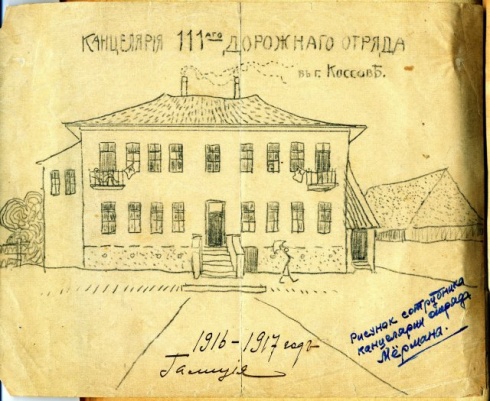 КАНЦЕЛЯРІЯ 111АГО ДОРОЖНАГО ОТРЯДА
въ г. КОССОВѢ.
1916-1917 годъ
Галиція
Рисунок сотрудника
канцелярии отряда
Мёрмана.